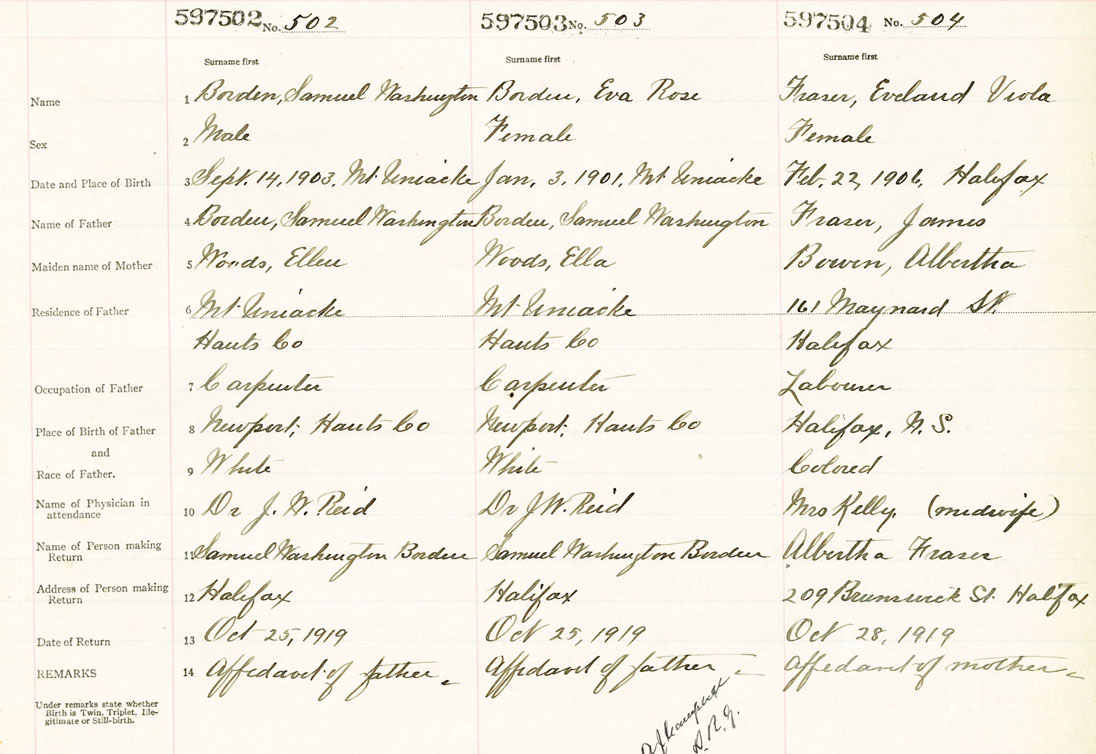 597502 No. 502 597503 No. 503 597504 No. 504
Surname first Surname first Surname first
Name 1 Borden, Samuel Washington Borden, Eva Rose Fraser, Eveland Viola
Sex 2 Male Female Female
Date and Place of Birth 3 Sept. 14, 1903. Mt. Uniacke Jan. 3. 1901. Mt Uniacke Feb. 22, 1906, Halifax
Name of Father 4 Borden, Samuel Washington Borden, Samuel Washington Fraser, James
Maiden name of Mother 5 Woods, Ellen Woods, Ella Bowen, Albertha
Residence of Father 6 Mt. Uniacke Mt. Uniacke 161 Maynard St.
Hants Co Hants Co Halifax
Occupation of Father 7 Carpenter Carpenter Labourer
Place of Birth of Father 8 Newport, Hants Co Newport, Hants Co Halifax, N.S.
and
Race of Father. 9 White White Colored
Name of Physician in attendance 10 Dr J. W. Reid Dr J W. Reid Mrs Kelly. (midwife)
Name of Person making Return 11 Samuel Washington Borden Samuel Washington Borden Albertha Fraser
Address of Person making Return 12 Halifax Halifax 209 Brunswick St. Halifax
Date of Return 13 Oct 25, 1919 Oct 25, 1919 Oct 28, 1919
REMARKS 14 Affedavit of father Affedavit of father Affedavit of mother
Under remarks state whether
Birth is Twin, Triplet, Ille-
gitimate or Still-birth.
D.R.G.